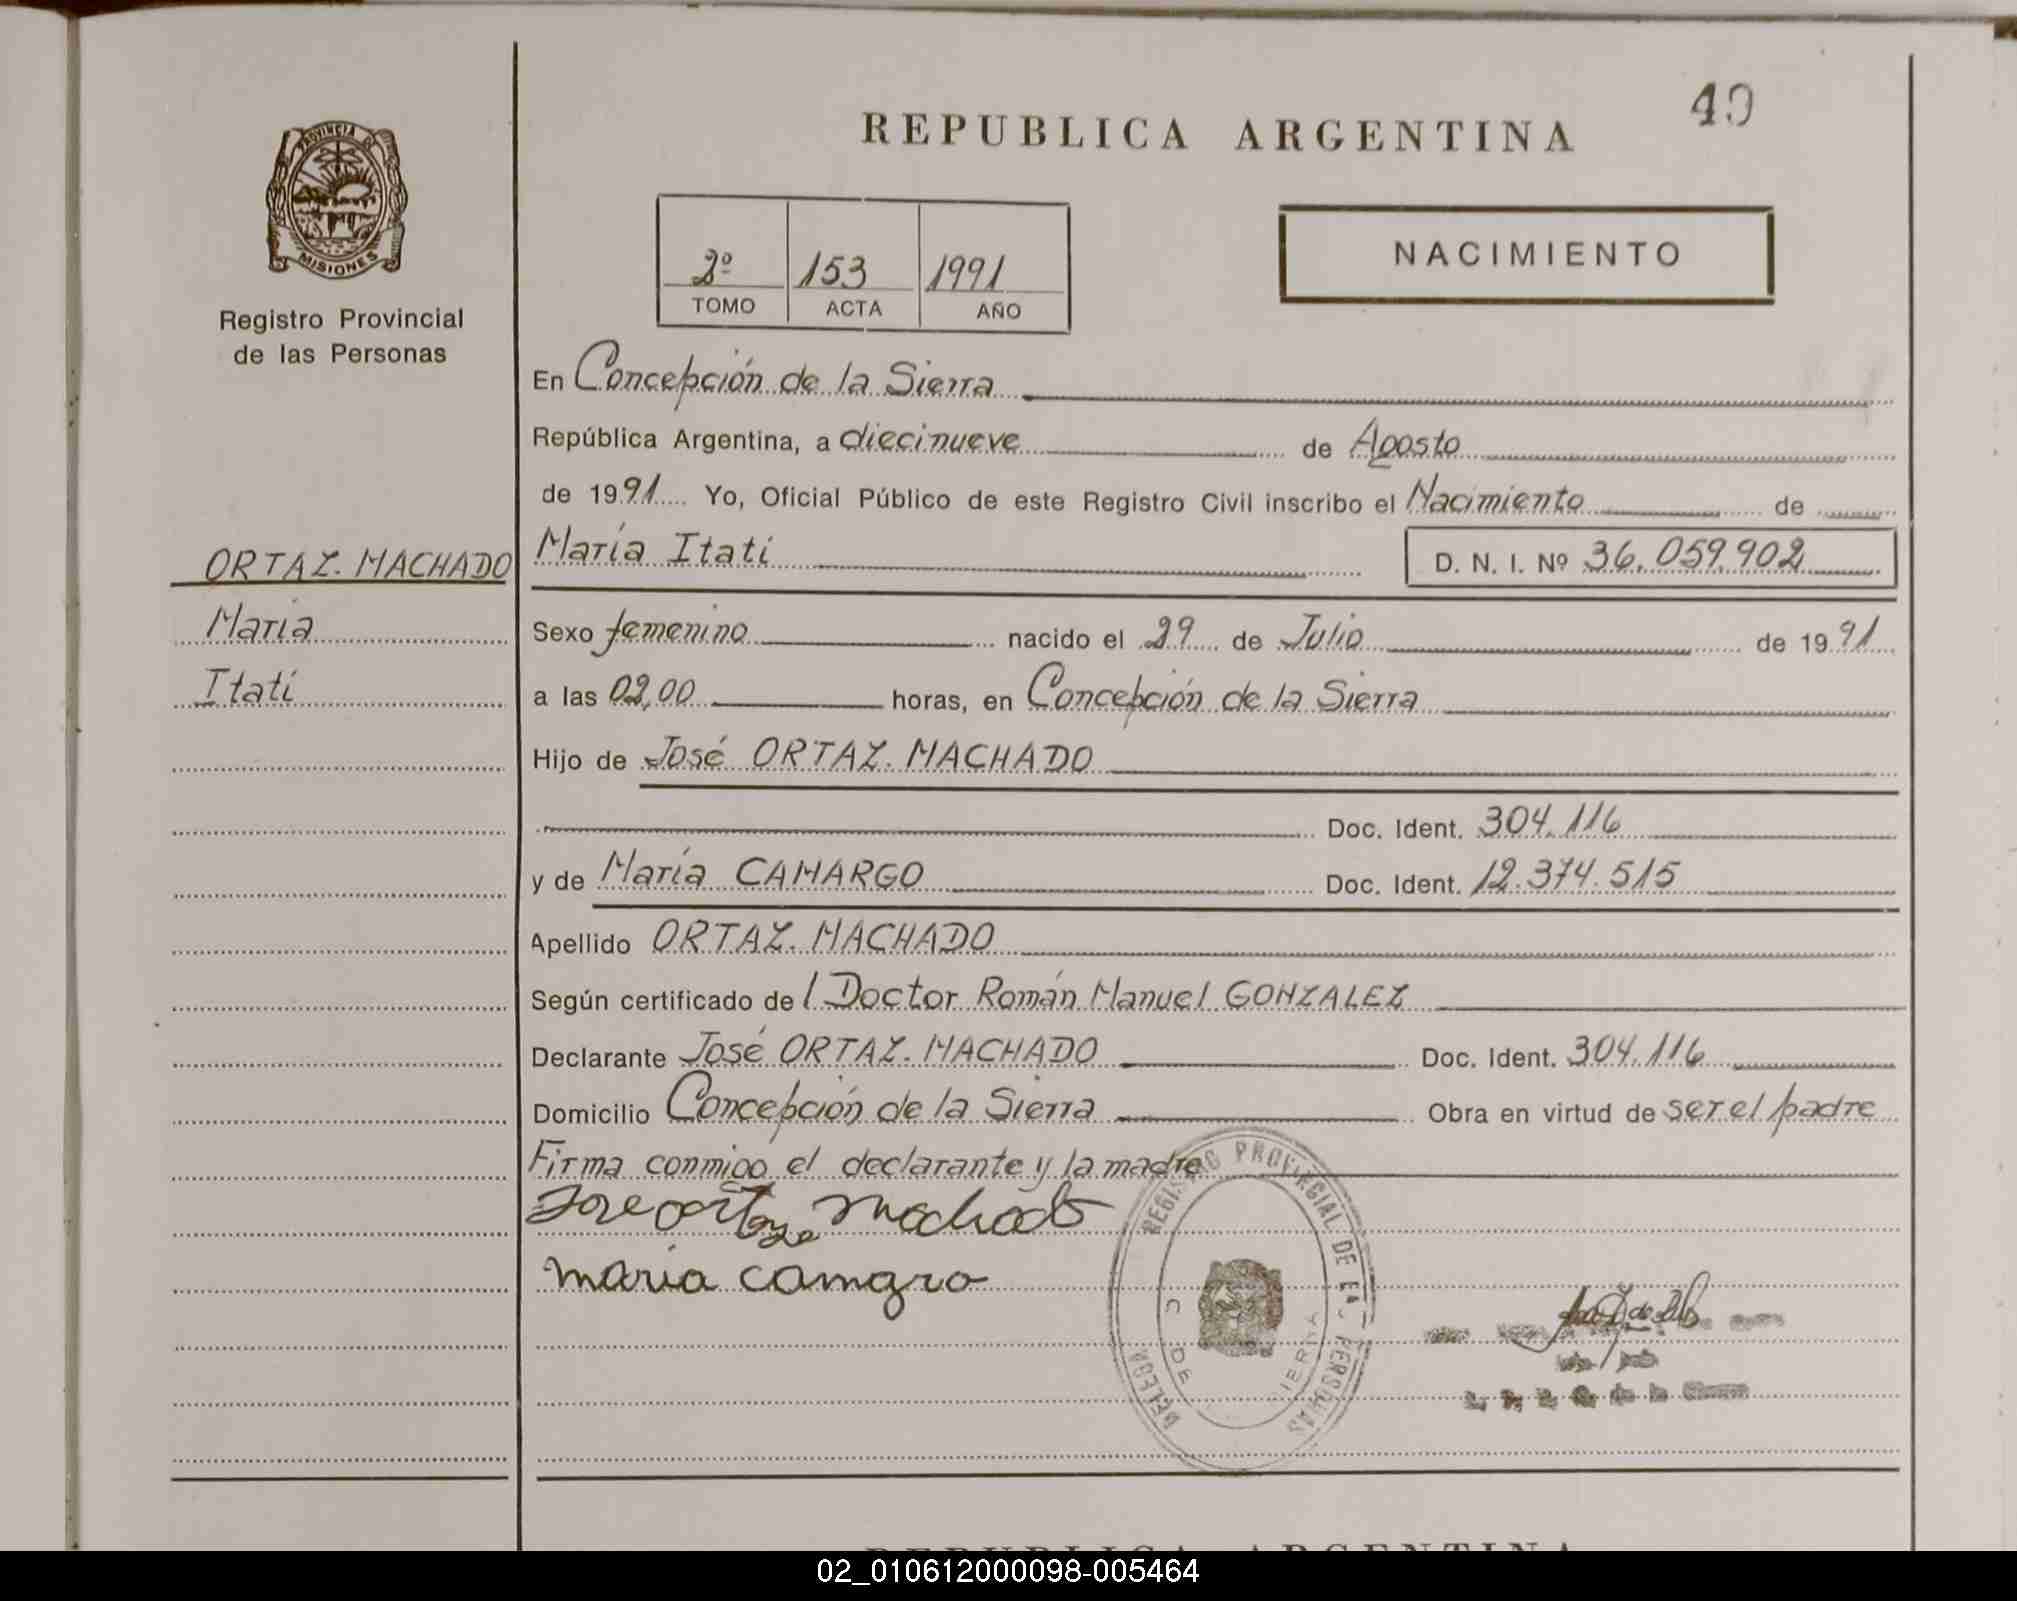 40
REPUBLICA ARGENTINA
PROVINCIA DE
MISIONES
Registro Provincial
de las Personas
2º 153 1991
TOMO ACTA AÑO
NACIMIENTO
En Concepción de la Sierra
República Argentina, a diecinueve de Agosto
de 1991 Yo, Oficial Público de este Registro Civil inscribo el Nacimiento de
ORTAZ. MACHADO
María
Itatí
María Itatí D. N. I. Nº 36.059.902
Sexo femenino nacido el 29 de Julio de 1991
a las 02,00 horas, en Concepción de la Sierra
Hijo de José ORTAZ. MACHADO
Doc. Ident. 304.116
y de María CAMARGO Doc. Ident. 12.374.515
Apellido ORTAZ. MACHADO
Según certificado del Doctor Román Manuel GONZALEZ
Declarante José ORTAZ. MACHADO Doc. Ident. 304.116
Domicilio Concepción de la Sierra Obra en virtud de ser el padre
Firma conmigo el declarante y la madre
Jose ortaz machado
maria camgro
REGISTRO PROVINCIAL DE LAS PERSONAS
REPUBLICA ARGENTINA
02_010612000098-005464